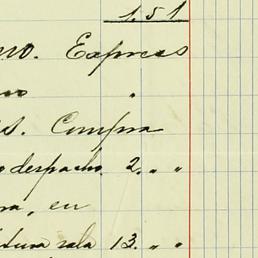 1.51
no. Expreso
"
s. Compra
o despacho. 2. " "
ra, en
tura sala 13. " "